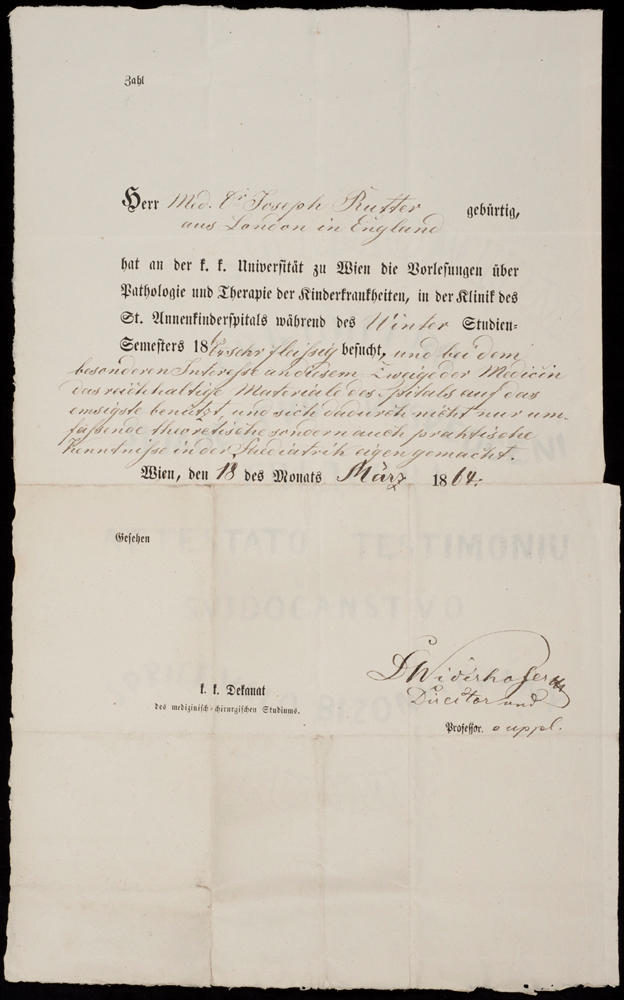 Zahl
Herr Med. Dr Joseph Rutter gebürtig,
aus London in England
hat an der k. k. Universität zu Wien die Vorlesungen über
Pathologie und Therapie der Kinderkrankheiten, in der Klinik des
St. Annenkinderspitals während des Winter Studien-
Semesters 18 sehr fleissig besucht, und bei dem
besonderen Interesse an diesem Zweige der Medicin
das reichhaltige Materiale des Spitals auf das
emsigste benützt, und sich dadurch nicht nur um-
fassende theoretische sondern auch praktische
Kenntnisse in der Paediatrik eigen gemacht.
Wien, den 18 des Monats März 1864.
Gesehen
ATTESTATO TESTIMONIU
SVIDOČANSTVO
k. k. Dekanat
des medizinisch-chirurgischen Studiums.
Dr Widerhofer
Director und
Professor. suppl.